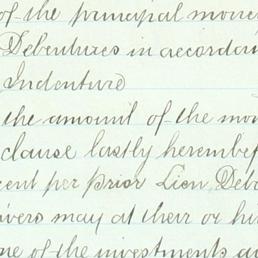 of the principal money
Debentures in accordan
Indenture
the amount of the mon
clause lastly hereinbef
cent per Prior Lien Deb
ivers may at their or hi
ne of the investments au